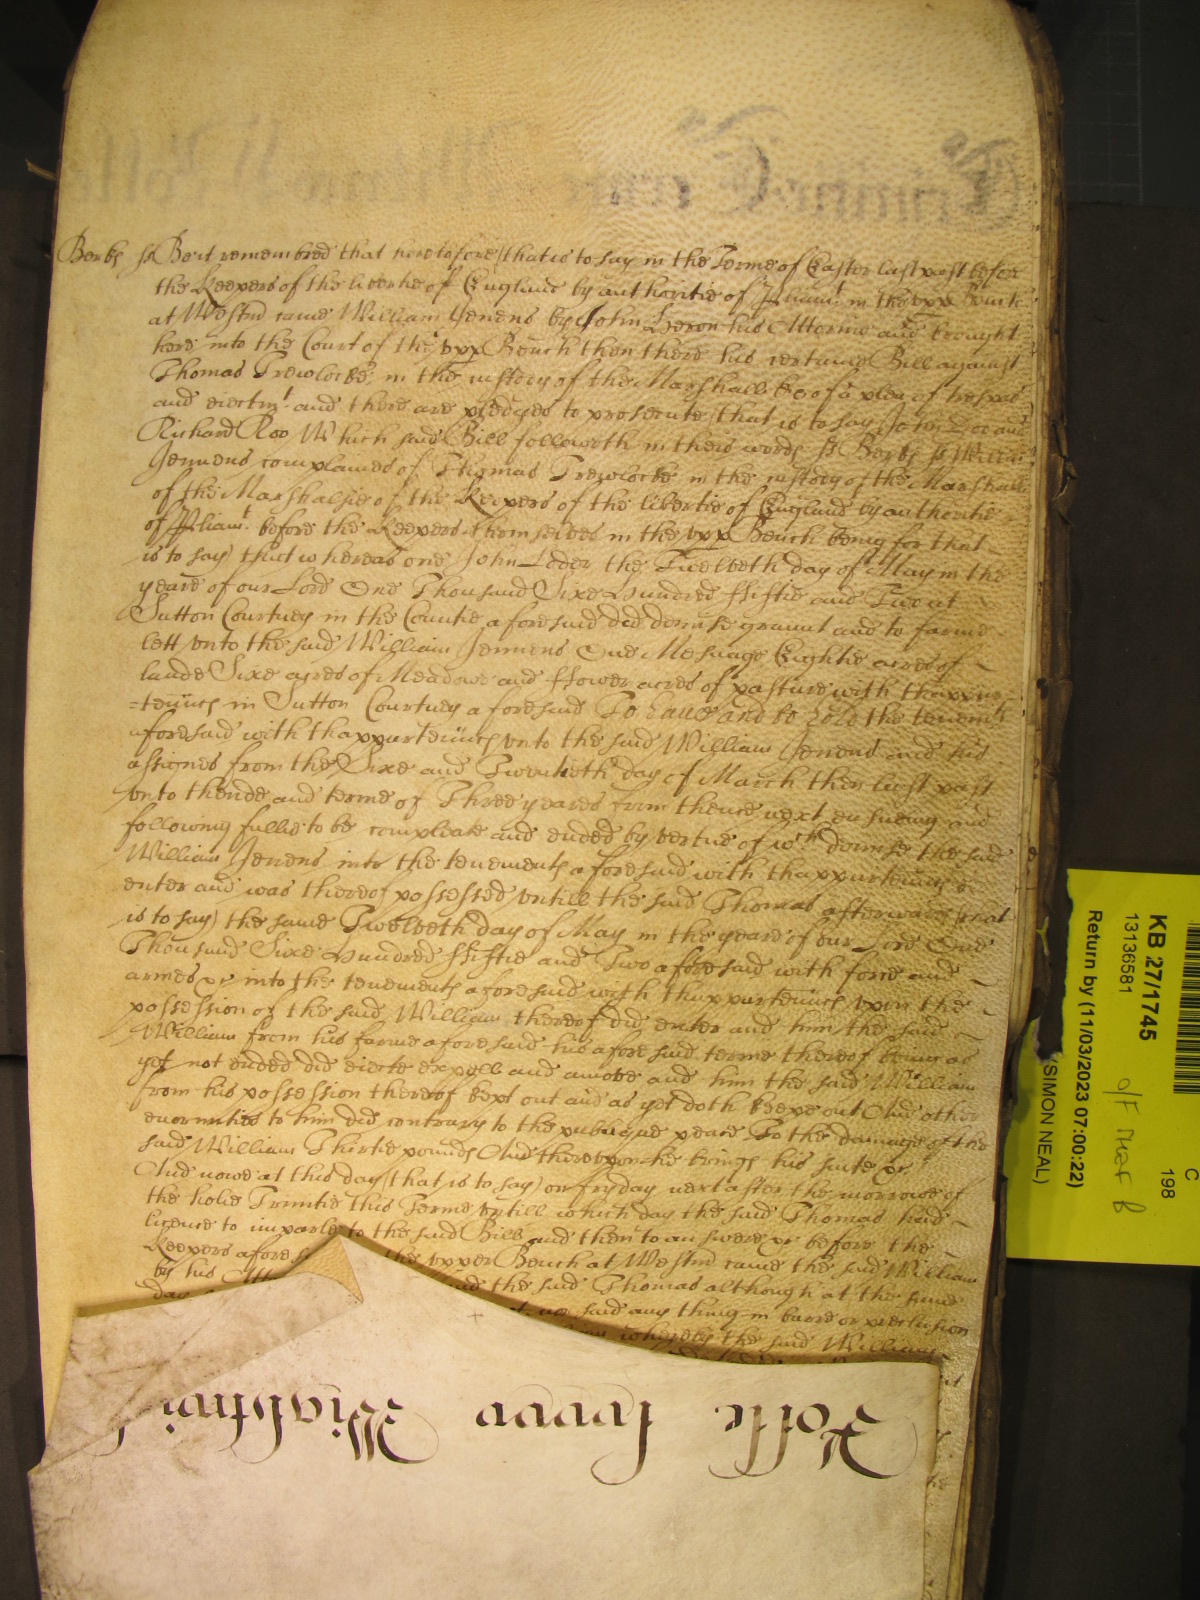 Berks ss Be it remembred that heretofore (that is to say in the Terme of Easter last past before
the Keepers of the libertie of England by authoritie of Parliamt in the vpp Bench
at Westm came William Jenens by John Heron his Attorne and brought
here into the Court of the vpp Bench then there his certaine Bill against
Thomas Trewlocke in the custody of the Marshall &c of a plea of trespas
and eiectmt and there are pledges to prosecute (that is to say) John Doe and
Richard Roo Which said Bill followeth in theis words ss Berks ss William
Jennens complaines of Thomas Trewlocke in the custody of the Marshall
of the Marshalsie of the Keepers of the libertie of England by authoritie
of Pliamt before the Keepers themselves in the vpp Bench being for that
is to say) that whereas one John Loder the Twelveth day of May in the
yeare of our Lord One Thousand Sixe Hundred ffiftie and Two at
Sutton Courtney in the Countie aforesaid did demise graunt and to farme
lett vnto the said William Jennens One Mesuage Eightie acres of
lande Sixe acres of Meadowe and ffower acres of pasture with thappur
=tennces in Sutton Courtney aforesaid To have and to hold the tenemts
aforesaid with thappurtennces vnto the said William Jenens and his
assignes from the Sixe and Twentieth day of March then last past
vnto thende and terme of Three yeares from thence next ensueing and
following fullie to be compleate and ended by vertue of wch demise the said
William Jenens into the tenements aforesaid with thappurtennces did
enter and was thereof possessed vntill the said Thomas afterwards (that
is to say) the same Twelveth day of May in the yeare of our Lord One
Thousand Sixe Hundred ffiftie and Two aforesaid with force and
armes &c into the tenements aforesaid with thappurtennces vpon the
possession of the said William thereof did enter and him the said
William from his farme aforesaid his aforesaid terme thereof being as
yet not ended did eiecte expell and amove and him the said William
from his possession thereof kept out and as yet doth keepe out And other
enormities to him did contrary to the publique peace To the damage of the
said William Thirtie pounds And therevpon he brings his suite &c
And nowe at this day (that is to say) on fryday next after the morrowe of
the holie Trinitie this Terme vntill which day the said Thomas had
licence to imparle to the said Bill and then to answere &c before the
Keepers afores the vpper Bench at Westm came the said William
by his Att and the said Thomas although at the same
day nor said any thing in barre or preclusion
whereby the said William
KB 27/1745
13136581
Return by (11/03/2023 07:00:22)
(SIMON NEAL)
C
198